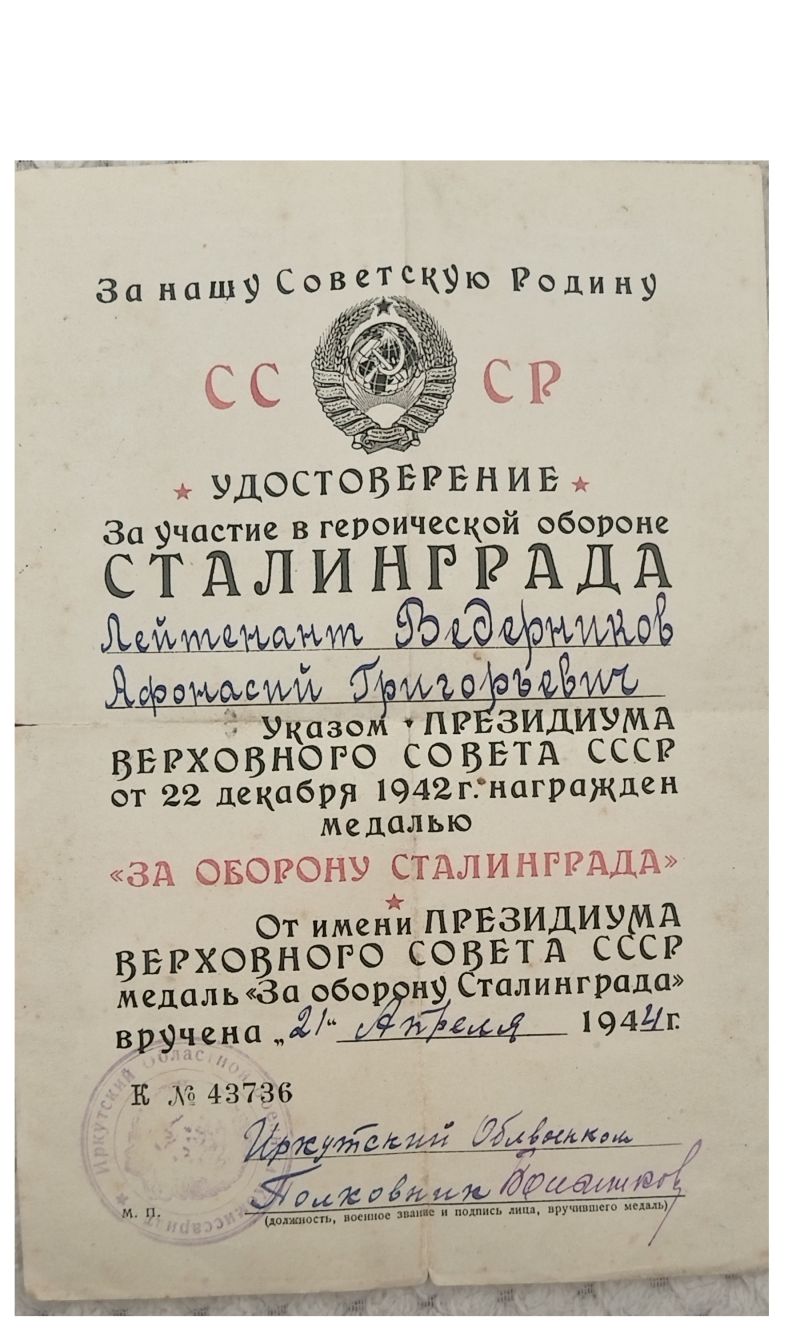 За нашу Советскую Родину
СС СР
УДОСТОВЕРЕНИЕ
За участие в героической обороне
СТАЛИНГРАДА
Лейтенант Ведерников
Афонасий Григорьевич
Указом ПРЕЗИДИУМА
ВЕРХОВНОГО СОВЕТА СССР
от 22 декабря 1942 г. награжден
медалью
«ЗА ОБОРОНУ СТАЛИНГРАДА»
От имени ПРЕЗИДИУМА
ВЕРХОВНОГО СОВЕТА СССР
медаль «За оборону Сталинграда»
вручена „21“ Апреля 1944 г.
К № 43736
Иркутский Областной
Иркутский Облвоенком
Полковник
М. П.
(должность, военное звание и подпись лица, вручившего медаль)